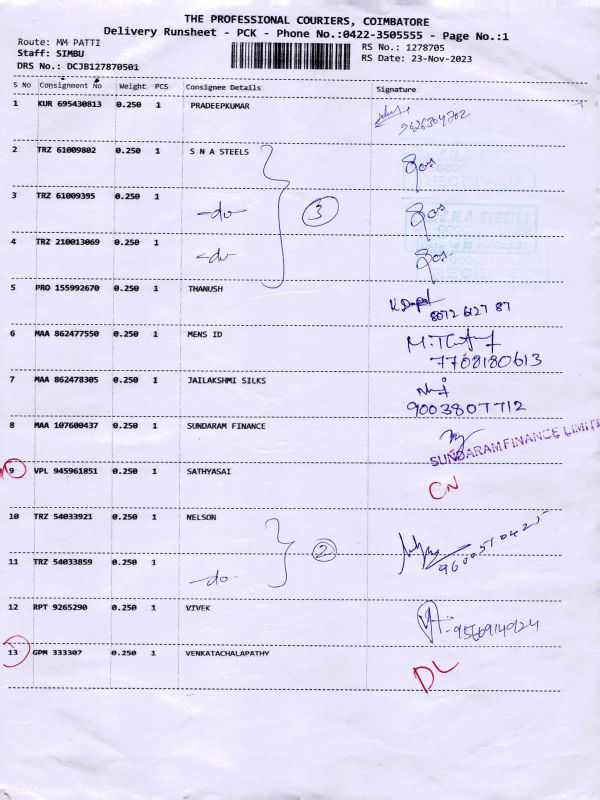 THE PROFESSIONAL COURIERS, COIMBATORE
Delivery Runsheet - PCK - Phone No.:0422-3505555 - Page No.:1
Route: MM PATTI
Staff: SIMBU
DRS No.: DCJB127870501
RS No.: 1278705
RS Date: 23-Nov-2023
S No Consignment No Weight PCS Consignee Details Signature
1 KUR 695430813 0.250 1 PRADEEPKUMAR
9626304702
2 TRZ 61009802 0.250 1 S N A STEELS
3 TRZ 61009395 0.250 1 -do- 3
S.N.A STEELS
4 TRZ 210013069 0.250 1 -do-
RECEIVED
5 PRO 155992670 0.250 1 THANUSH
8072 6127 87
6 MAA 862477550 0.250 1 MENS ID
7708180613
7 MAA 862478305 0.250 1 JAILAKSHMI SILKS
9003807712
8 MAA 107600437 0.250 1 SUNDARAM FINANCE
SUNDARAM FINANCE LIMITE
9 VPL 945961851 0.250 1 SATHYASAI CN
10 TRZ 54033921 0.250 1 NELSON
2
9600510425
11 TRZ 54033859 0.250 1 -do-
12 RPT 9265290 0.250 1 VIVEK
13 GPM 333307 0.250 1 VENKATACHALAPATHY DL